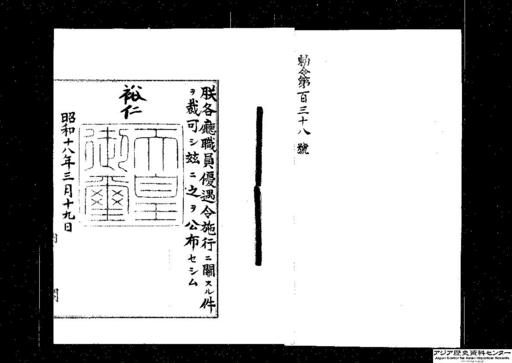 勅令第百三十八號
朕各廳職員優遇令施行ニ關スル件
ヲ裁可シ茲ニ之ヲ公布セシム
裕仁
天皇
御璽
昭和十八年三月十九日
アジア歴史資料センター
Japan Center for Asian Historical Records